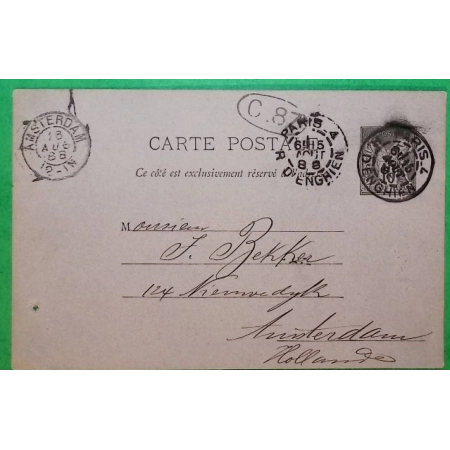 AMSTERDAM
16
AUG
88
12-1N
C.8
PARIS 4
6E 15
AOUT
88
R. D'ENGHIEN
PARIS-4
CARTE POSTA
Ce côté est exclusivement réservé à
Monsieur
J. Bekker
124 Nieuwedyk
Amsterdam
Hollande